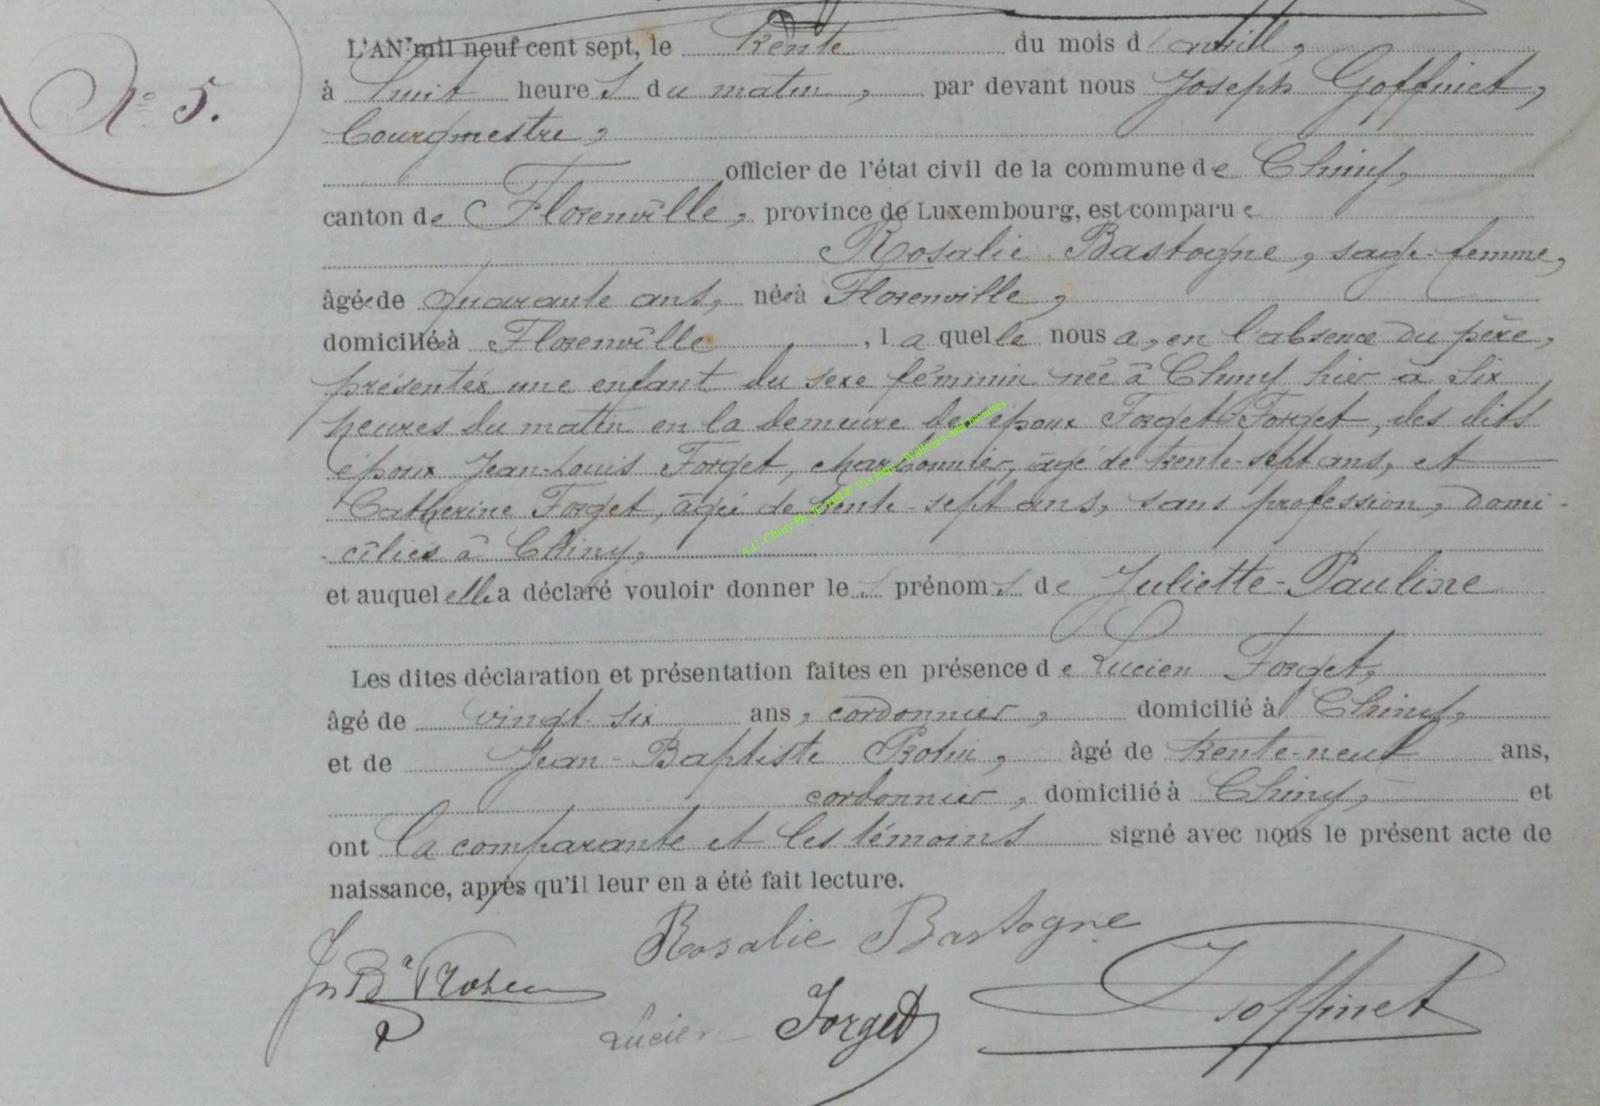 N° 5.
L'AN mil neuf cent sept, le trente du mois d'avril,
à huit heures du matin, par devant nous Joseph Goffinet,
bourgmestre,
officier de l'état civil de la commune de Chiny,
canton de Florenville, province de Luxembourg, est comparue
Rosalie Bastogne, sage-femme,
âgée de quarante ans, née à Florenville,
domiciliée à Florenville, laquelle nous a, en l'absence du père,
présentée une enfant du sexe féminin née à Chiny hier à six
heures du matin en la demeure des époux Forget-Forget, des dits
époux Jean-Louis Forget, charbonnier, âgé de trente-sept ans, et
Catherine Forget, âgée de trente-sept ans, sans profession, domi-
-ciliés à Chiny,
et auquel elle a déclaré vouloir donner les prénoms de Juliette-Pauline
Les dites déclaration et présentation faites en présence de Lucien Forget,
âgé de vingt-six ans, cordonnier, domicilié à Chiny,
et de Jean-Baptiste Rotin, âgé de trente-neuf ans,
cordonnier, domicilié à Chiny, et
ont la comparante et les témoins signé avec nous le présent acte de
naissance, après qu'il leur en a été fait lecture.
Rosalie Bastogne
Lucien Forget
JGoffinet